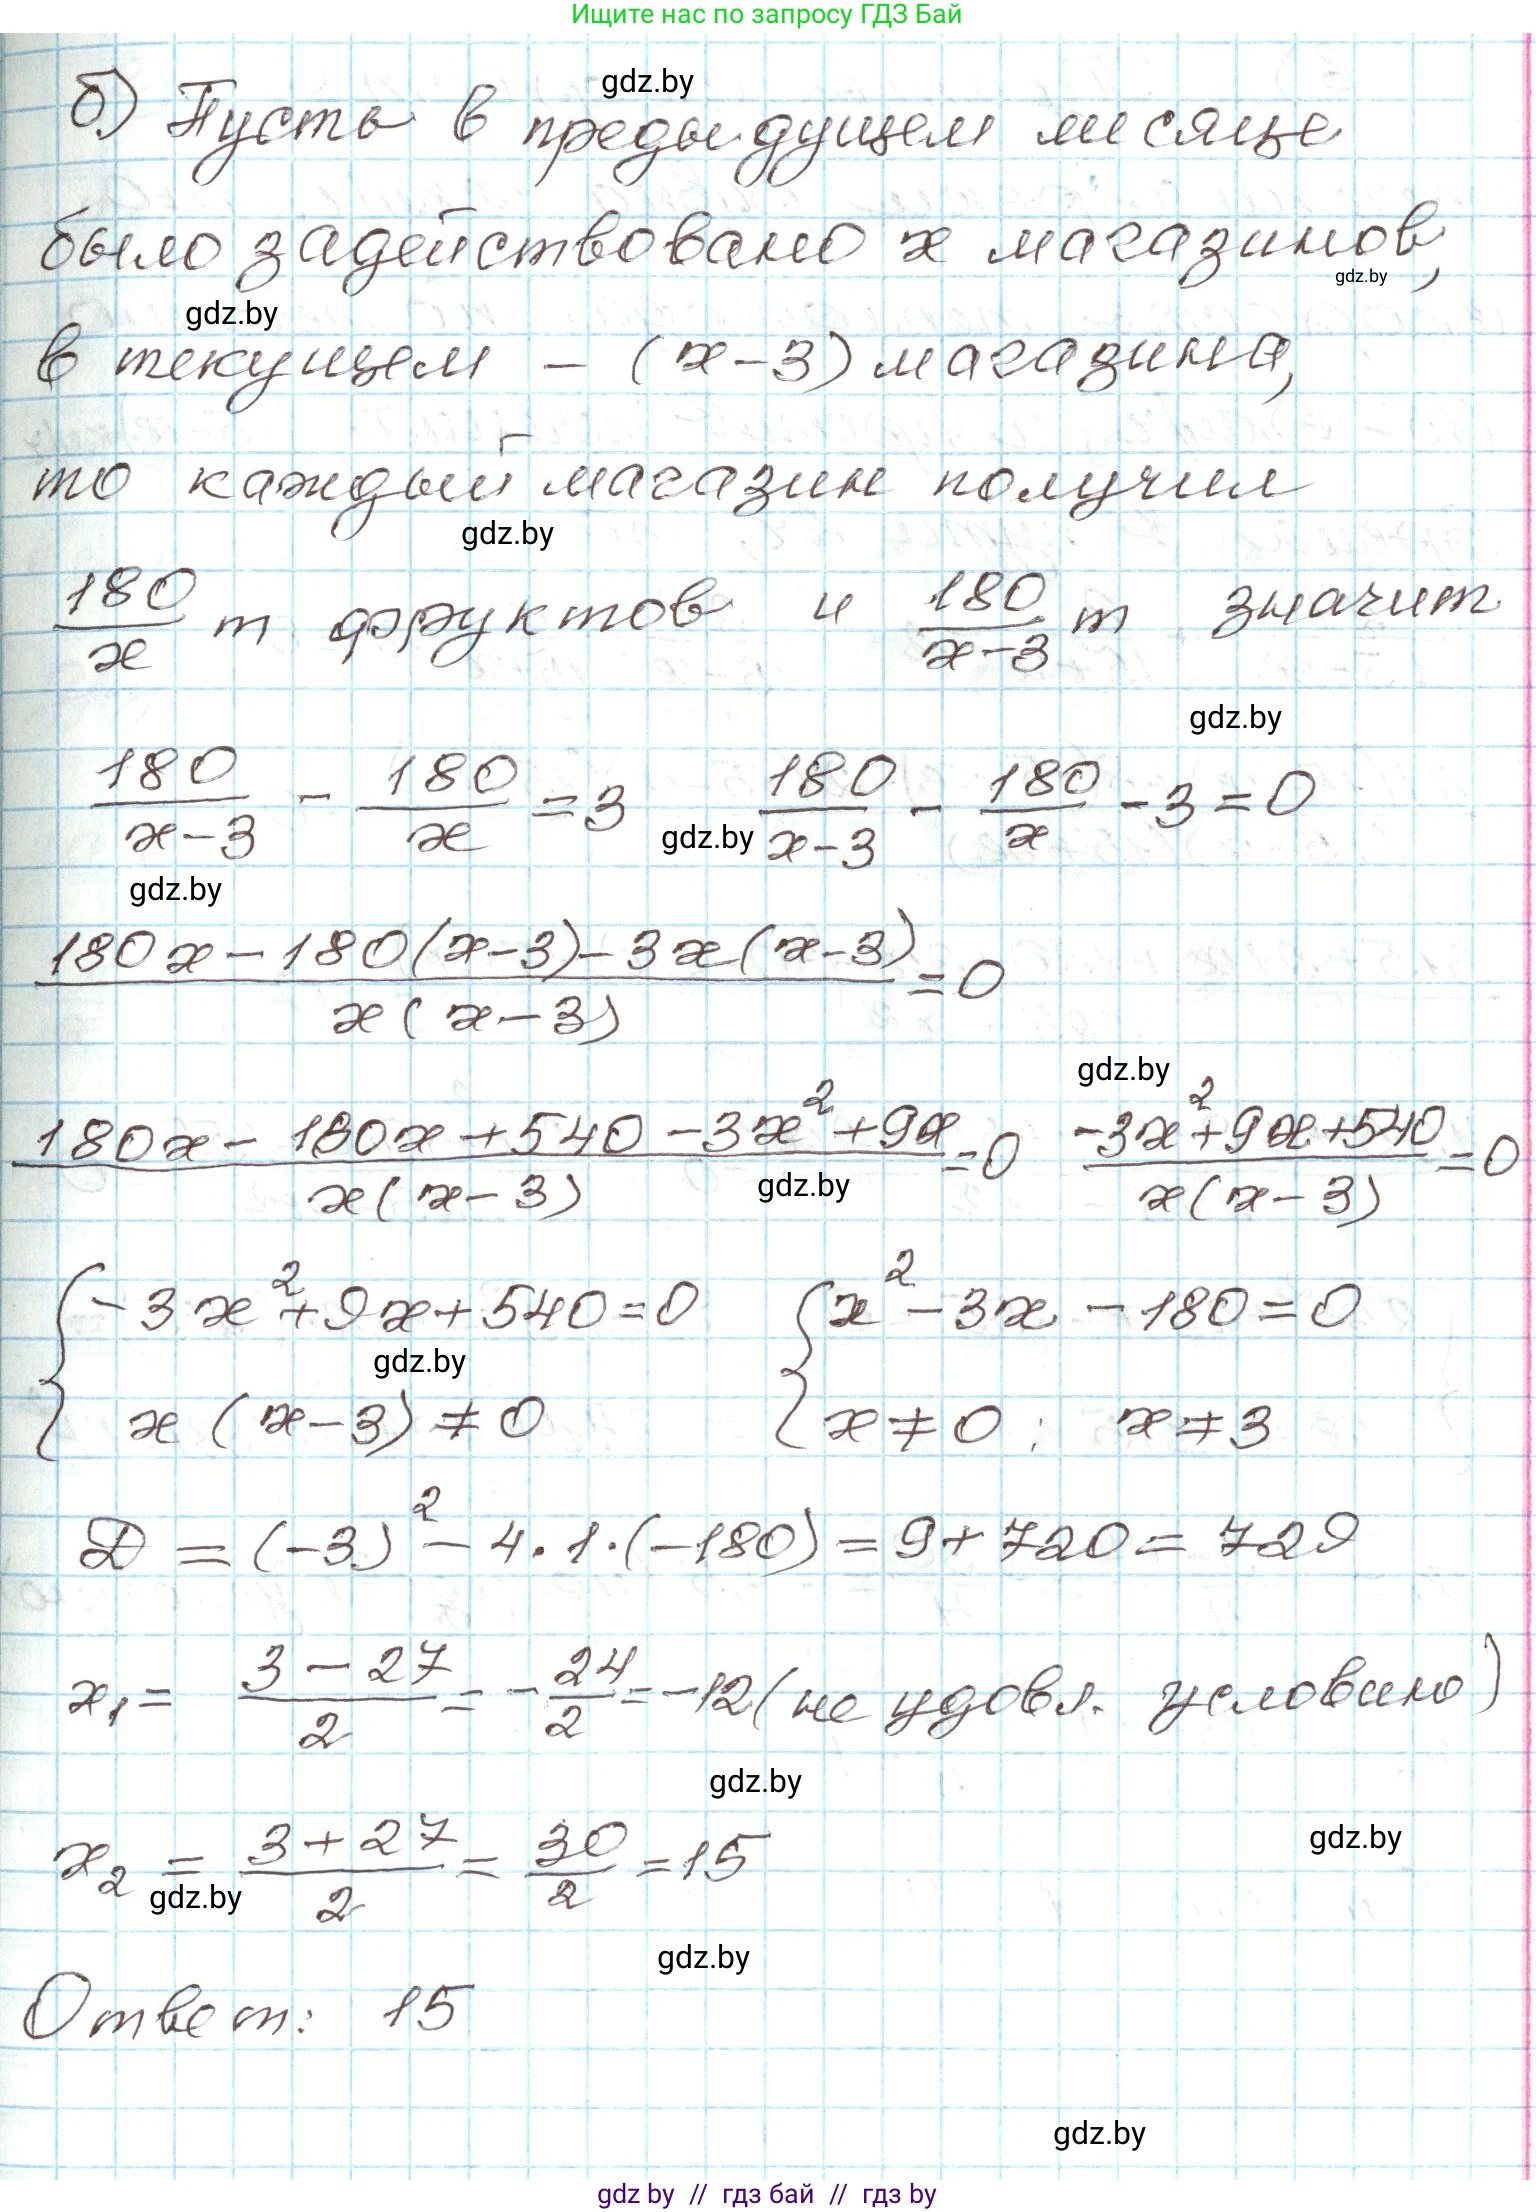 Ищите нас по запросу ГДЗ Бай
gdz.by
б) Пусть в предыдущем месяце
было задействовано x магазинов,
gdz.by
gdz.by
в текущем – (x-3) магазина,
то каждый магазин получил
gdz.by
180/x т фруктов и 180/(x-3) т значит
gdz.by
180/(x-3) - 180/x = 3 180/(x-3) - 180/x - 3 = 0
gdz.by
gdz.by
(180x - 180(x-3) - 3x(x-3))/(x(x-3)) = 0
gdz.by
(180x - 180x + 540 - 3x² + 9x)/(x(x-3)) = 0 (-3x² + 9x + 540)/(x(x-3)) = 0
gdz.by
{ -3x² + 9x + 540 = 0 { x² - 3x - 180 = 0
gdz.by
x(x-3) ≠ 0 x ≠ 0; x ≠ 3
D = (-3)² - 4·1·(-180) = 9 + 720 = 729
x₁ = (3-27)/2 = -24/2 = -12 (не удовл. условию)
gdz.by
gdz.by
x₂ = (3+27)/2 = 30/2 = 15
gdz.by
gdz.by
Ответ: 15
gdz.by
gdz by // гдз бай // гдз by